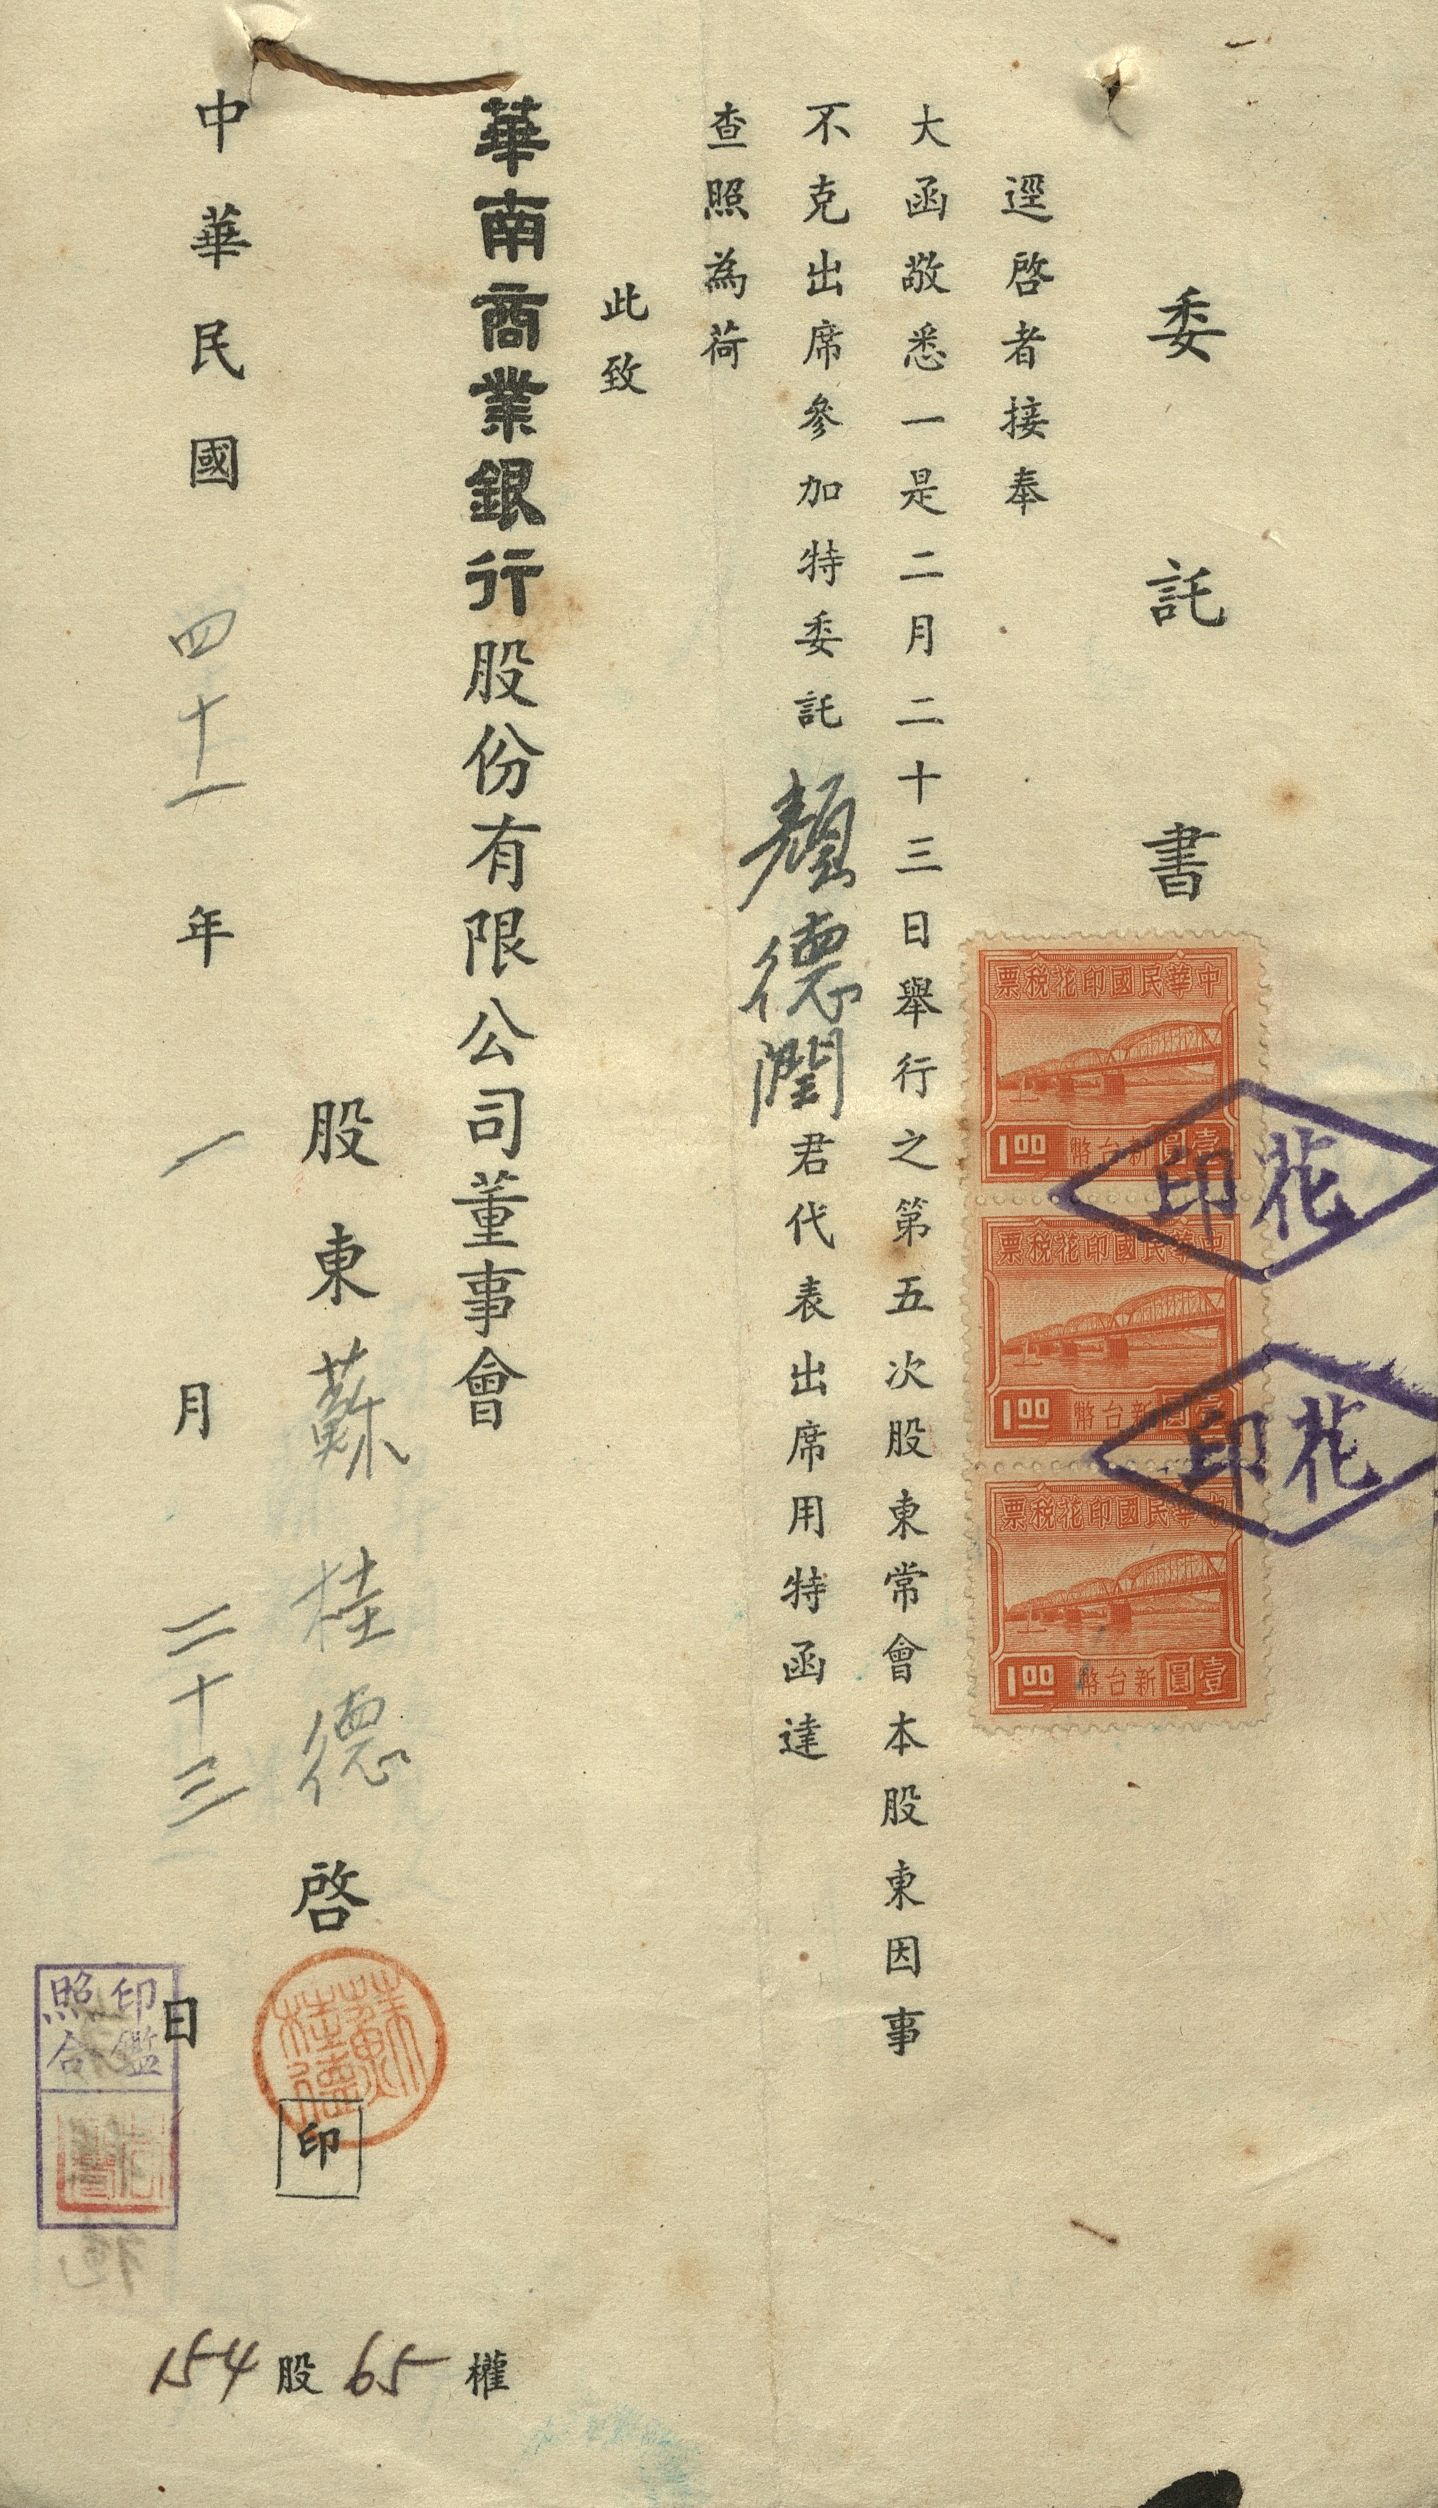 委託書
逕啓者接奉
大函敬悉一是二月二十三日舉行之第五次股東常會本股東因事
不克出席參加特委託顏德潤君代表出席用特函達
查照為荷
此致
華南商業銀行股份有限公司董事會
股東蘇桂德啓
印
蘇桂德
中華民國四十一年一月二十三日
154股65權
中華民國印花稅票
1.00 新台幣壹圓
中華民國印花稅票
1.00 新台幣壹圓
中華民國印花稅票
1.00 新台幣壹圓
印花
印花
印鑑
照合